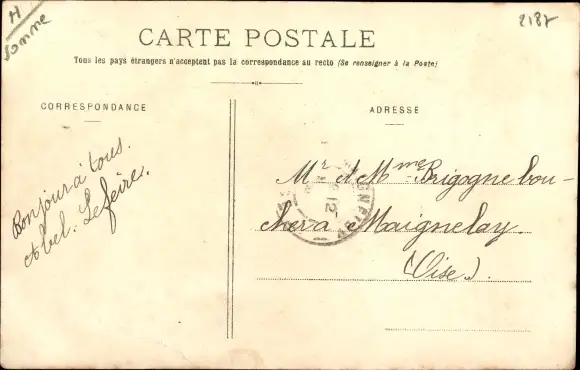 H
Somme
2187
CARTE POSTALE
Tous les pays étrangers n'acceptent pas la correspondance au recto (Se renseigner à la Poste)
CORRESPONDANCE
Bonjour à tous.
Abel. Lefeire.
ADRESSE
Mr & Mme Brigogne bou-
chers à Maignelay.
(Oise.)
12